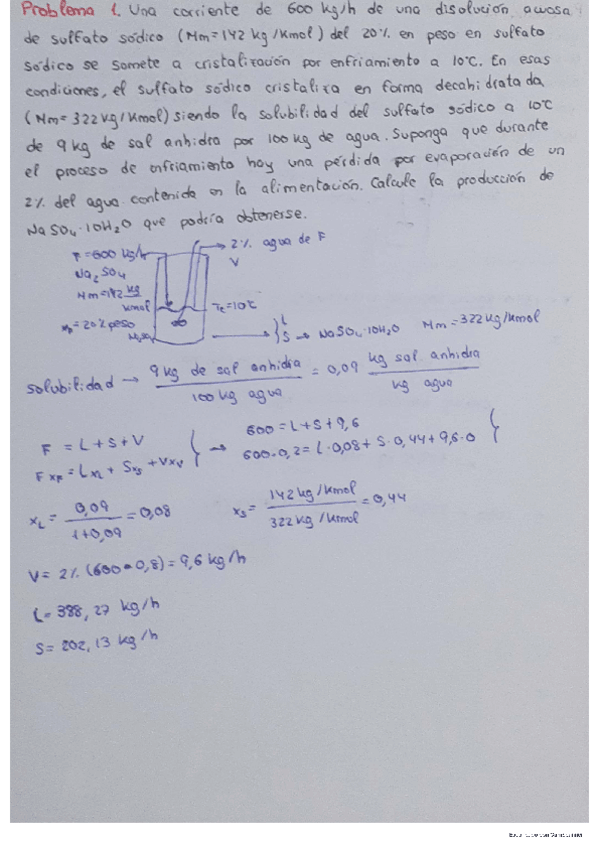 Problema 1. Una corriente de 600 kg/h de una disolución acuosa
de sulfato sódico (Mm=142 kg/kmol) del 20% en peso en sulfato
sódico se somete a cristalización por enfriamiento a 10ºC. En esas
condiciones, el sulfato sódico cristaliza en forma decahidratada,
(Mm=322 kg/kmol) siendo la solubilidad del sulfato sódico a 10ºC
de 9 kg de sal anhidra por 100 kg de agua. Suponga que durante
el proceso de enfriamiento hay una pérdida por evaporación de un
2% del agua contenida en la alimentación. Calcule la producción de
NaSO4·10H2O que podría obtenerse.
F=600 kg/h
Na2SO4
Mm=142 kg/kmol
xF=20% peso
Na2SO4
2% agua de F
V
Tc=10ºC
L
S → NaSO4·10H2O Mm=322 kg/kmol
solubilidad → 9 kg de sal anhidra / 100 kg agua = 0,09 kg sal anhidra / kg agua
F = L+S+V
F xF = L xL + S xS + V xV
→ 600 = L+S+9,6
600·0,2 = L·0,08 + S·0,44 + 9,6·0
xL = 0,09 / 1+0,09 = 0,08
xS = 142 kg/kmol / 322 kg/kmol = 0,44
V = 2% (600·0,8) = 9,6 kg/h
L = 388,27 kg/h
S = 202,13 kg/h